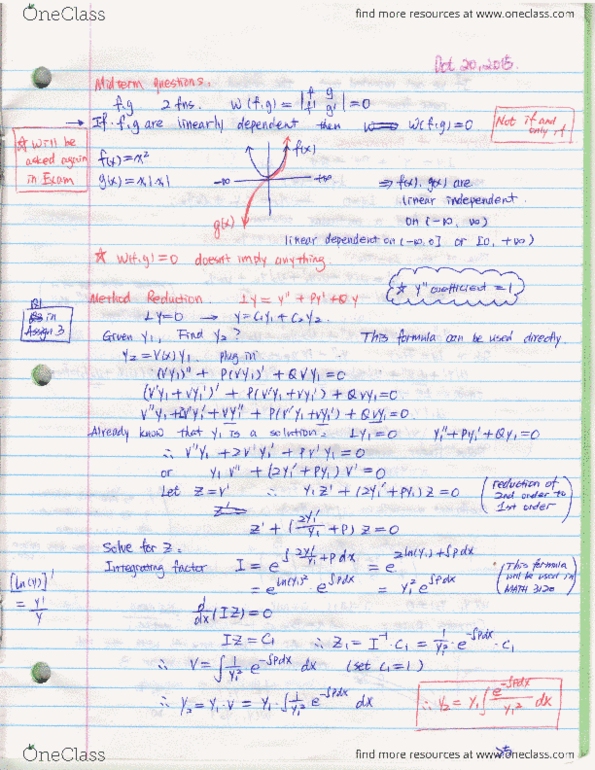 OneClass
find more resources at www.oneclass.com
Oct 20, 2015.
Midterm questions.
f.g 2 fns. W(f,g) = |f g f' g'| = 0
→ If f,g are linearly dependent then ⟹ W(f,g)=0
Not if and only if
☆ Will be asked again in Exam
f(x)=x²
g(x)=x|x|
f(x)
-∞
+∞
g(x)
⇒ f(x), g(x) are
linear independent
on (-∞, ∞)
linear dependent on (-∞,0] or [0, +∞)
☆ W(f,g)=0 doesn't imply anything.
☆ y'' coefficient = 1
Method Reduction. Ly = y'' + Py' + Qy
Q1 in Assign 3
Ly=0 → y=C₁y₁+C₂y₂
Given y₁, Find y₂?
This formula can be used directly.
y₂=V(x)y₁ plug in
(Vy₁)'' + P(Vy₁)' + QVy₁=0
(V'y₁+Vy₁')' + P(V'y₁+Vy₁') + QVy₁=0
V''y₁+2V'y₁'+Vy₁'' + P(V'y₁+Vy₁') + QVy₁=0
Already know that y₁ is a solution: Ly₁=0 y₁''+Py₁'+Qy₁=0
∴ V''y₁ + 2V'y₁' + PV'y₁ = 0
or y₁V'' + (2y₁' + Py₁) V' = 0
Let Z=V' ∴ y₁Z' + (2y₁'+Py₁)Z = 0
(reduction of 2nd order to 1st order)
Z' + (2y₁'/y₁ + P) Z = 0
Solve for Z.
Integrating factor I = e^∫(2y₁'/y₁ + P)dx = e^(2ln(y₁)+∫Pdx)
= e^(ln(y₁)²) · e^∫Pdx = y₁² e^∫Pdx
(This formula will be used in MATH 3120)
[ln(y)]' = y'/y
d/dx (IZ) = 0
IZ = C₁ ∴ Z₁ = I⁻¹·C₁ = 1/y₁² · e^-∫Pdx · C₁
∴ V = ∫ 1/y₁² e^-∫Pdx dx (set C₁=1)
∴ y₂ = y₁·V = y₁·∫ 1/y₁² e^-∫Pdx dx
∴ y₂ = y₁∫ e^-∫Pdx / y₁² dx
OneClass
find more resources at www.oneclass.com